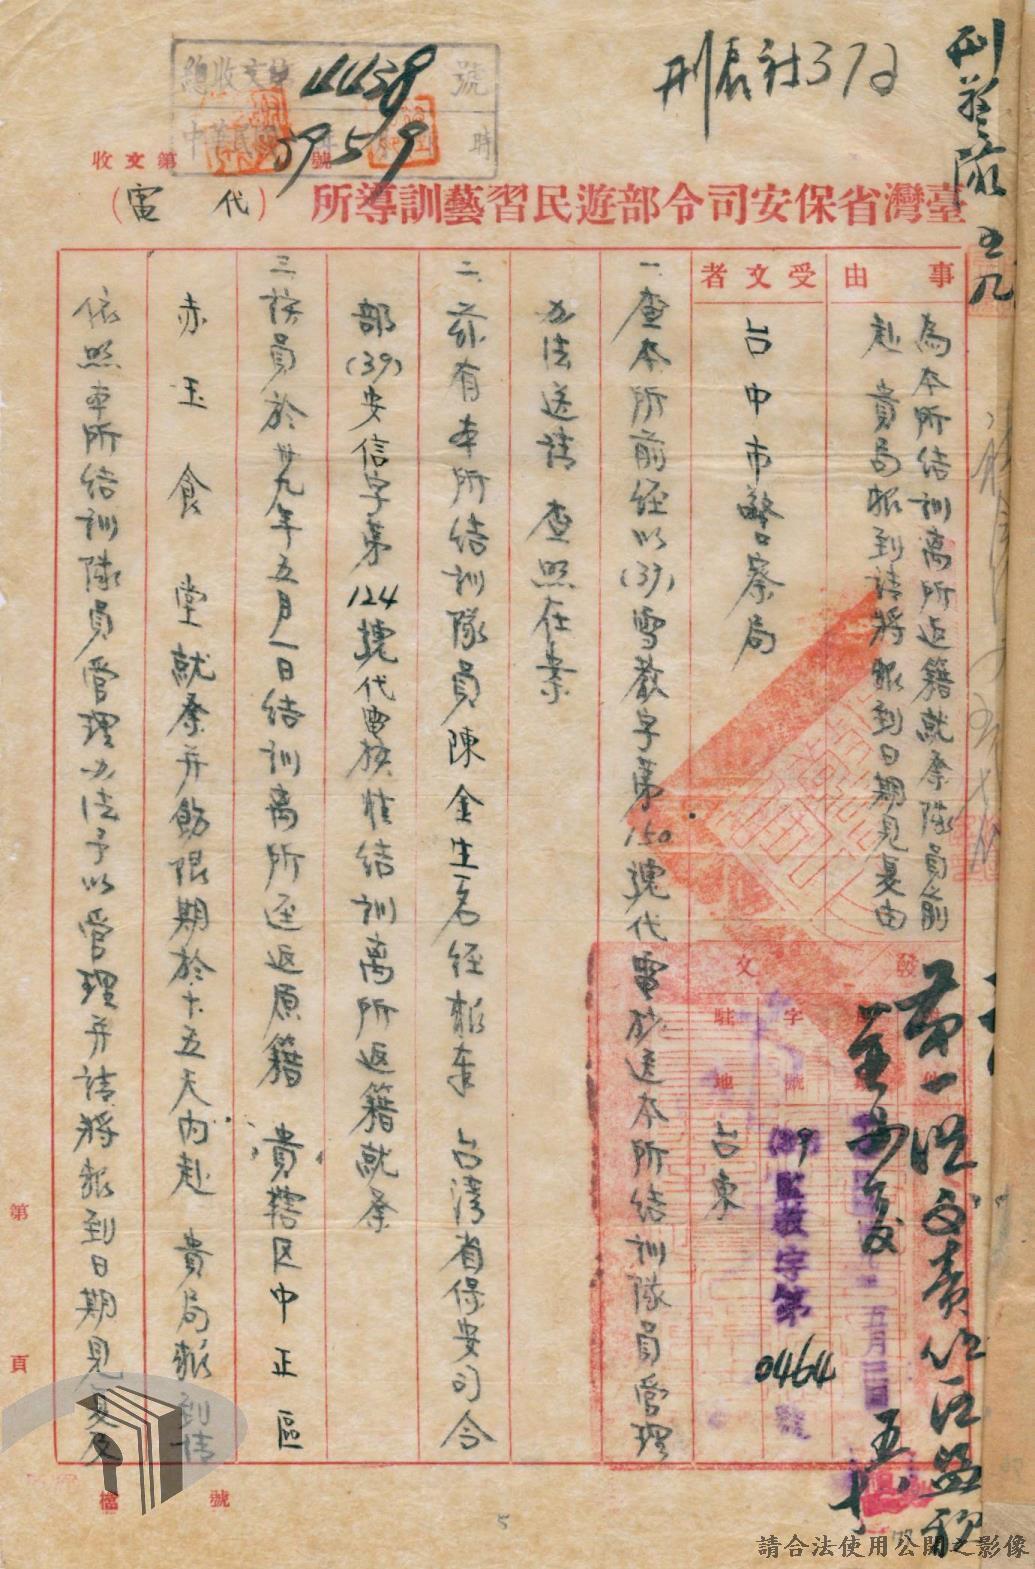 刑警隊
五九
刑長社372
總收文 4438 號
中華民國 39 5 9 時
收文第 號
臺灣省保安司令部遊民習藝訓導所(代電)
事由
為本所結訓离所返籍就業隊員前
赴 貴局報到請將報到日期見复由
受文者
台中市警察局
發文
字號
駐地
(39)監教字第0464號
五月三日
台東
一、查本所前經以(39)雪教字第150號代電抄送本所結訓隊員管理
办法送請 查照在案
二、茲有本所結訓隊員陳金生一名經報奉 台湾省保安司令
部(39)安信字第124號代電核准結訓离所返籍就業
三、該員於卅九年五月一日結訓离所逕返原籍 貴轄区中正區
赤玉食堂就業并飭限期於十五天内赴 貴局報到請
依照本所結訓隊員管理办法予以管理并請將報到日期見复及
第 頁
檔 號
5
請合法使用公開之影像